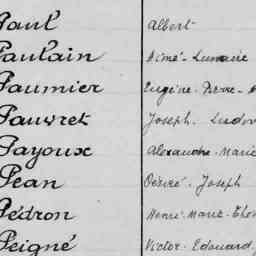 Paul Albert
Paulain Aimé-Lumaire
Paumier Eugène-Pierre-
Pauvret Joseph Ludov
Payoux Alexandre-Marie
Péan Désiré-Joseph
Pédron Henri-Marie-
Peigné Victor-Edouard